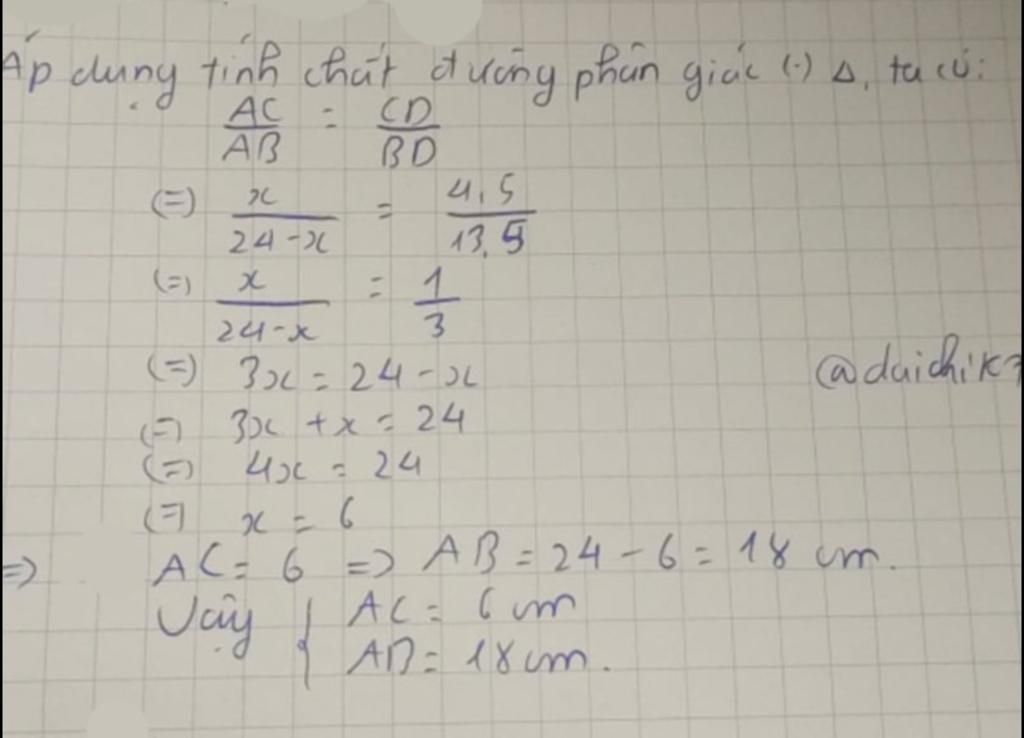 Áp dụng tính chất đường phân giác (.) Δ, ta có:
AC/AB = CD/BD
(=) x/24-x = 4,5/13,5
(=) x/24-x = 1/3
(=) 3x = 24 - x
@daichik
(=) 3x + x = 24
(=) 4x = 24
(=) x = 6
=) AC = 6 =) AB = 24 - 6 = 18 cm.
Vậy { AC = 6 cm
AB = 18 cm.